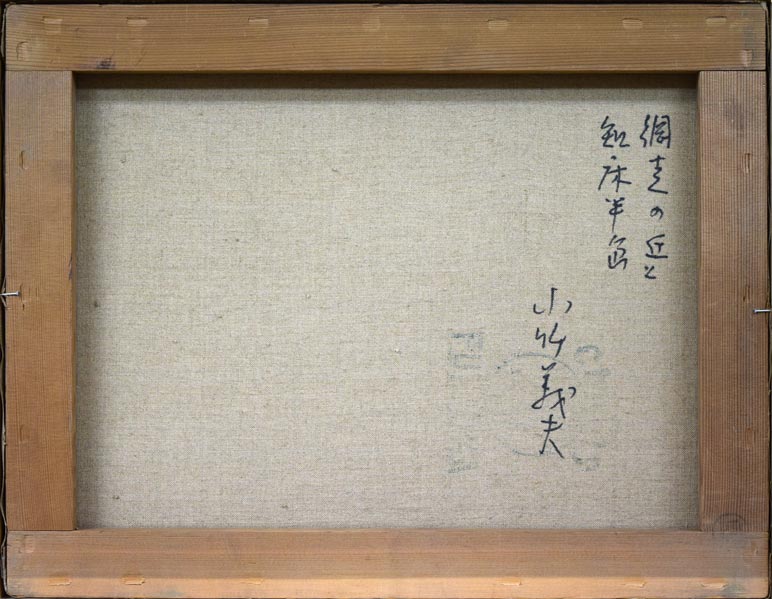 網走の丘と
知床半島
小竹義夫